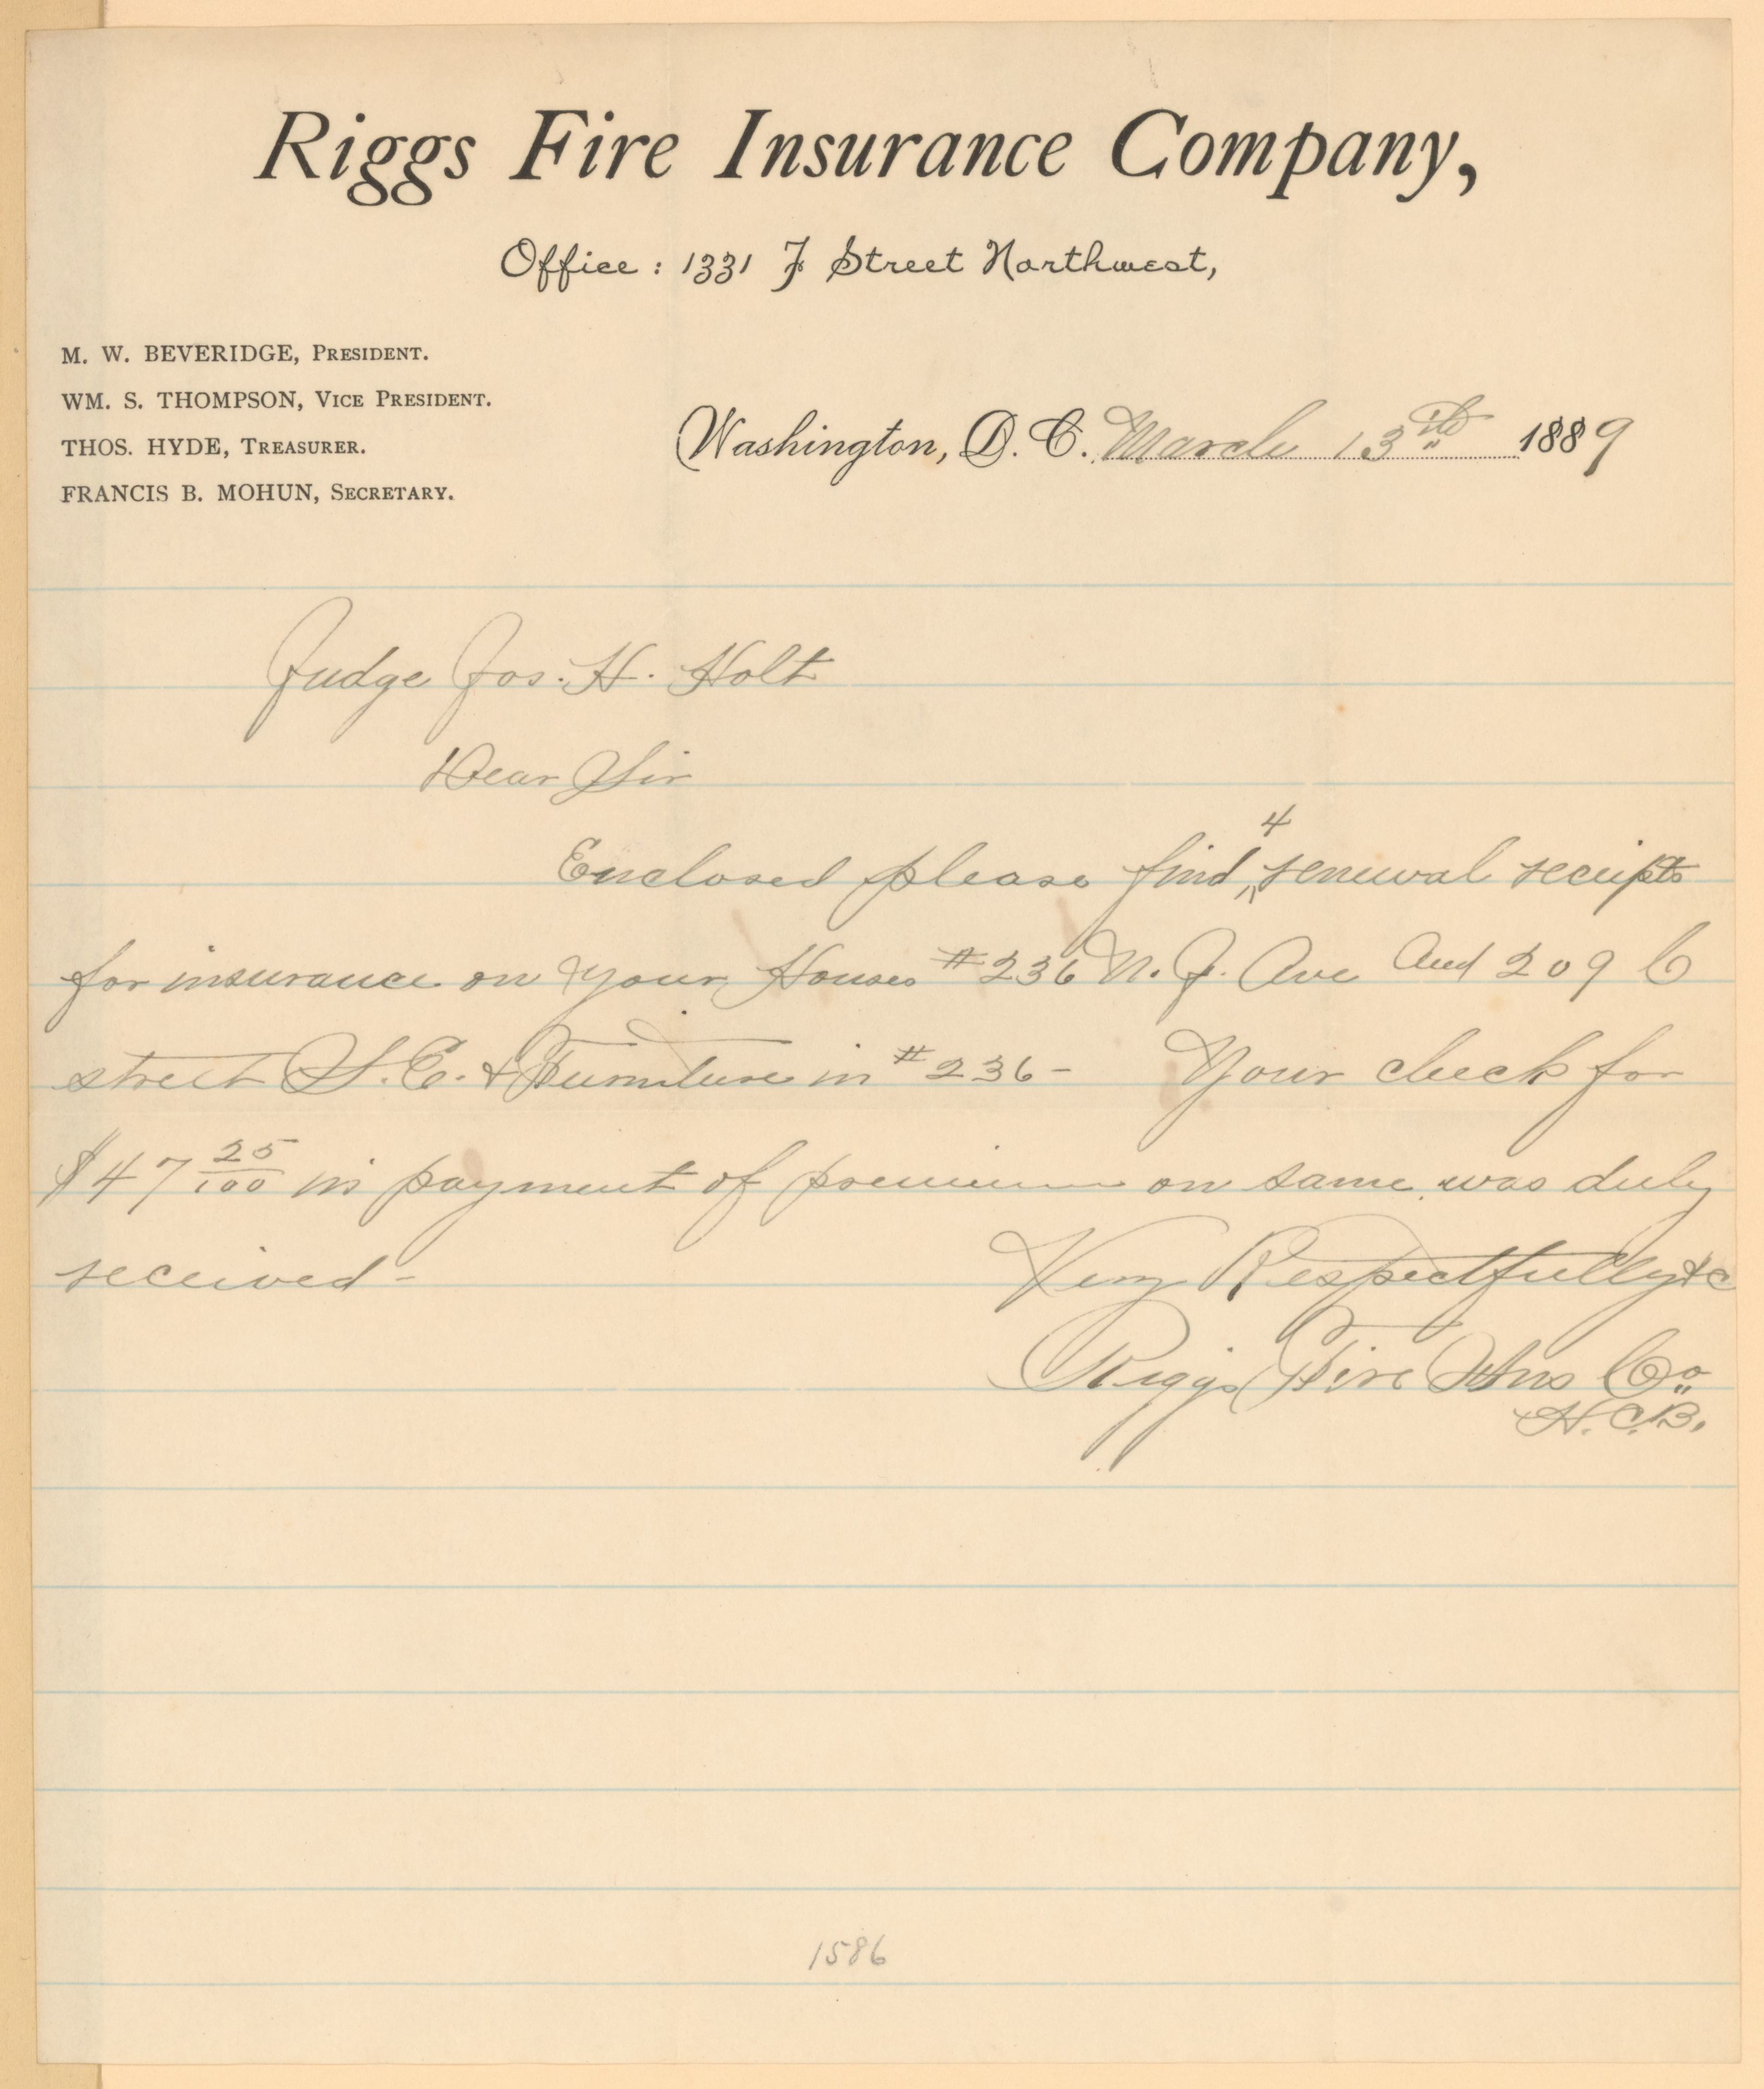 Riggs Fire Insurance Company,
Office: 1331 F Street Northwest,
M. W. BEVERIDGE, PRESIDENT.
WM. S. THOMPSON, VICE PRESIDENT.
THOS. HYDE, TREASURER.
FRANCIS B. MOHUN, SECRETARY.
Washington, D. C. March 13th 1889
Judge Jos. H. Holt
Dear Sir
4
Enclosed please find ‸ renewal receipts
for insurance on your Houses #236 N. J. Ave and 209 C
street S. E. & Furniture in #236- Your check for
$47 25/100 in payment of premium on same was duly
received-
Very Respectfully &c
Riggs Fire Ins Co
H. C. B.
1586